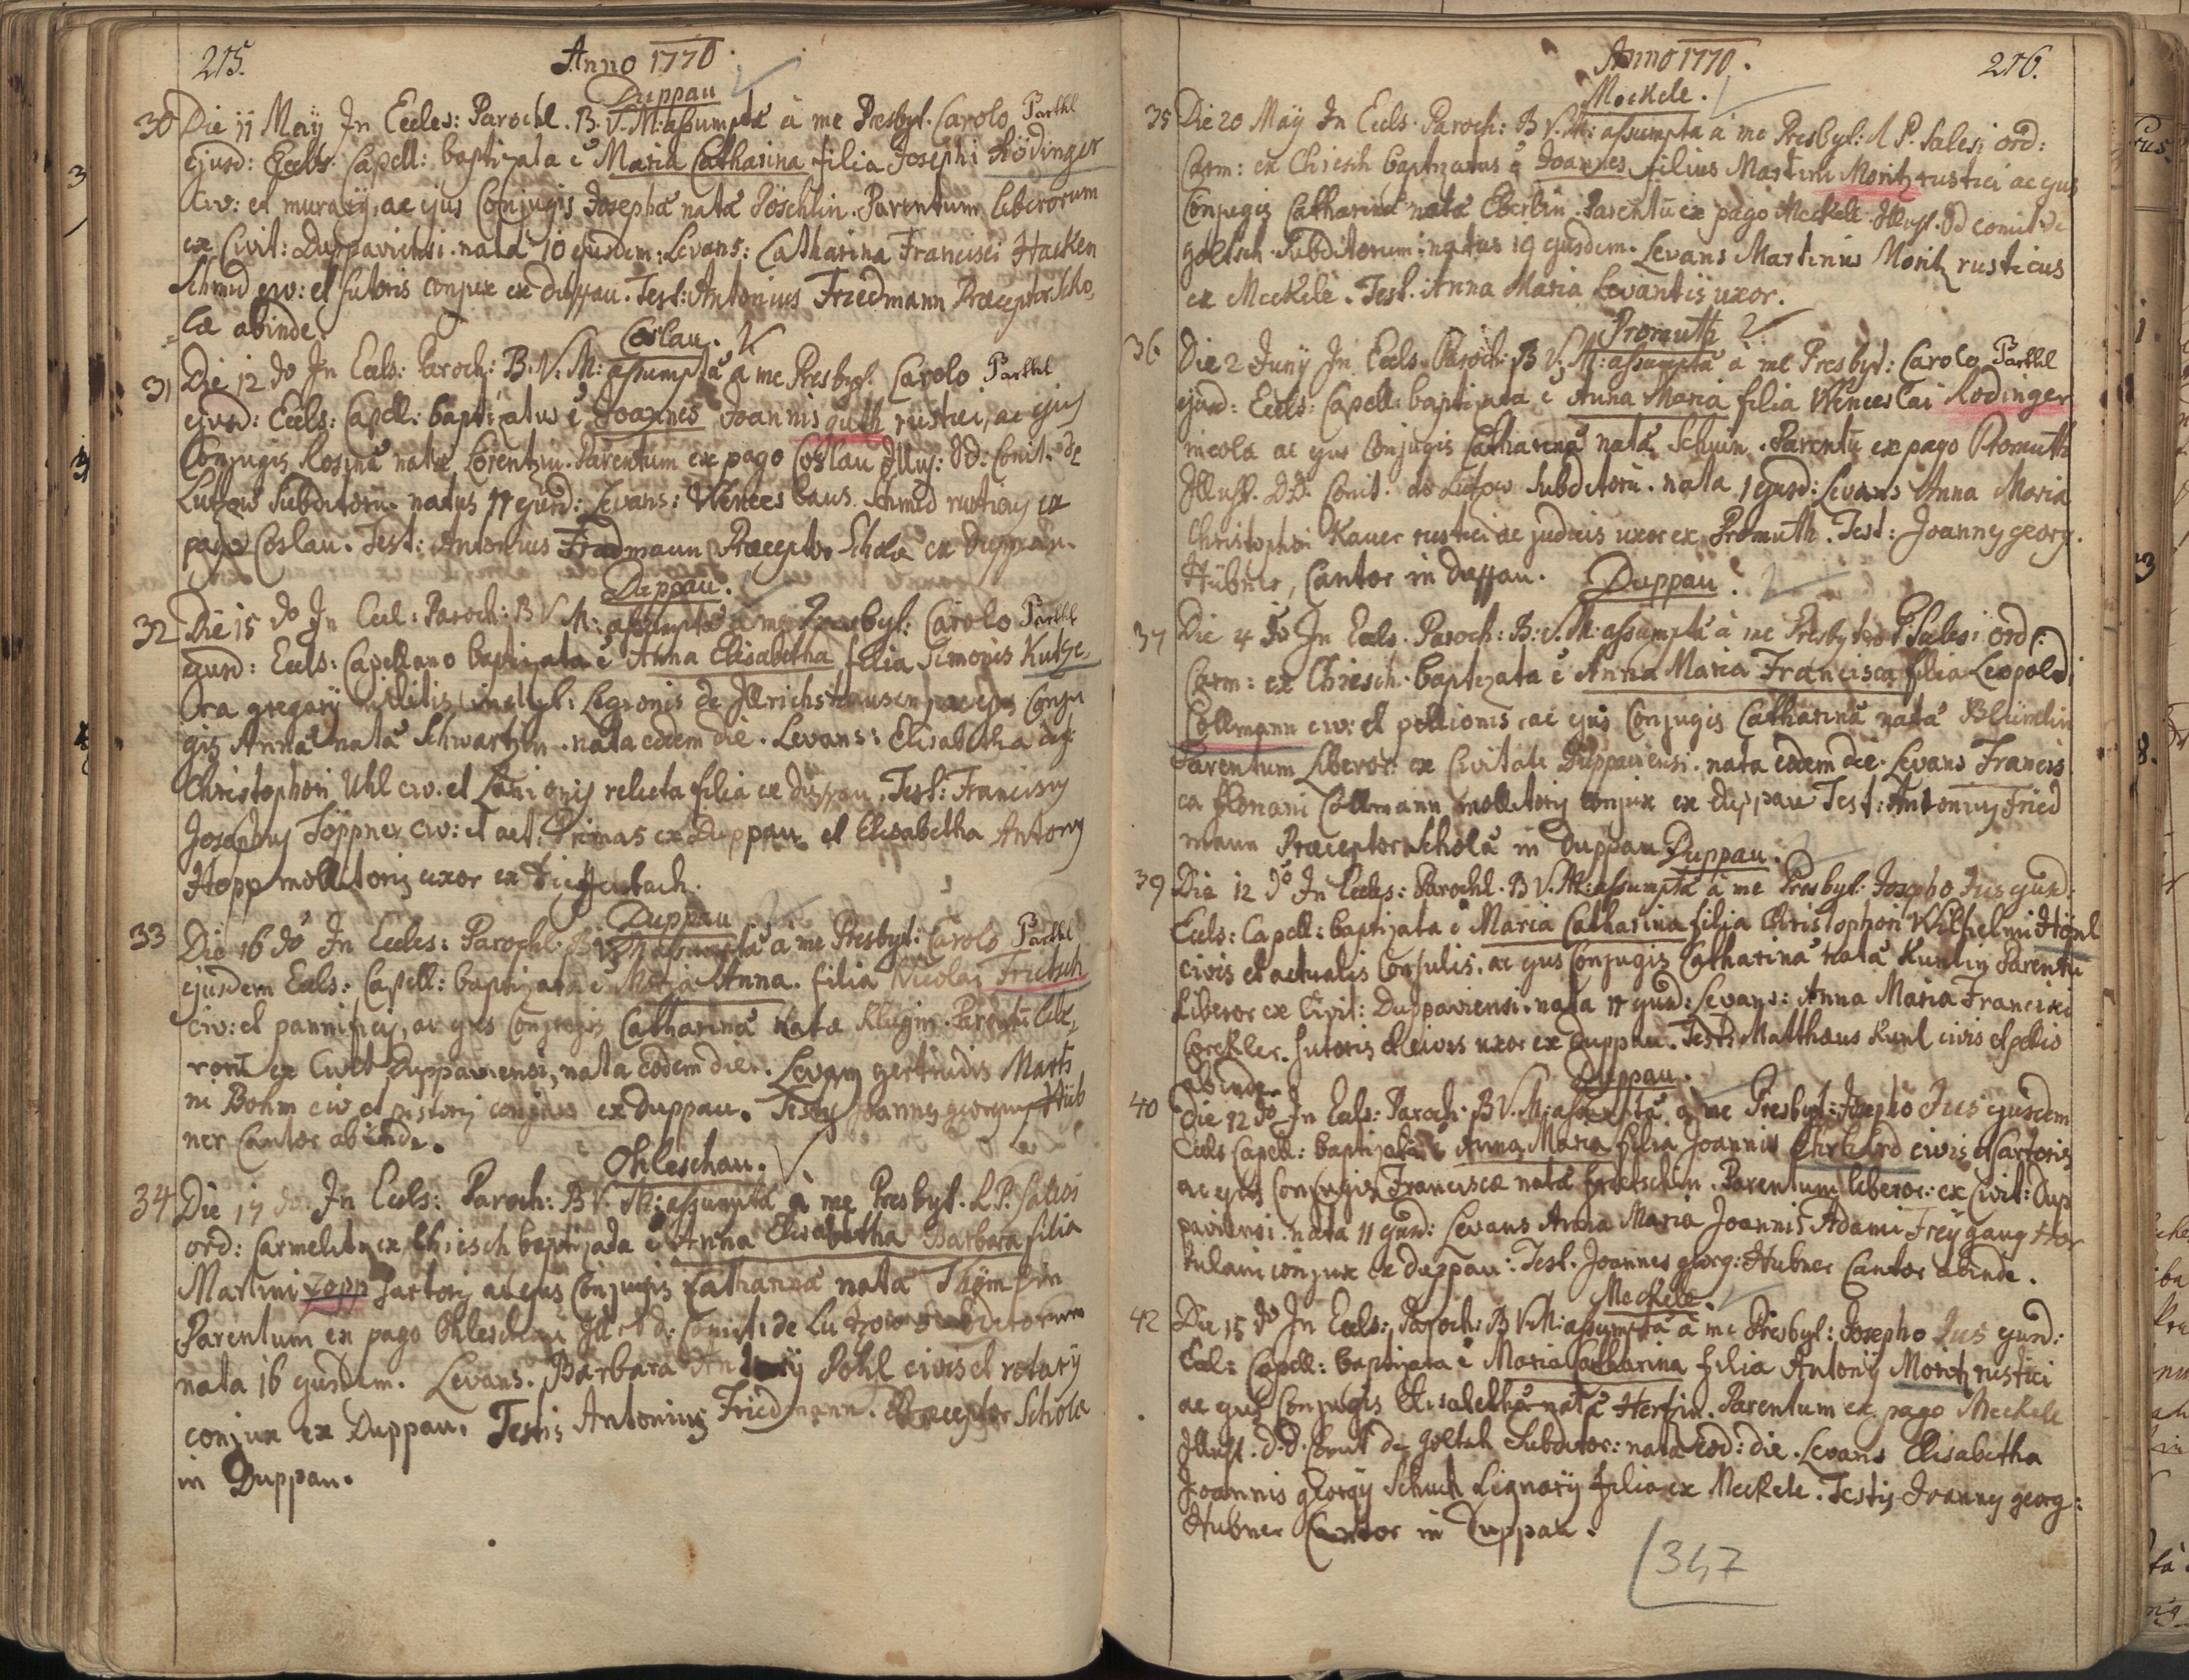 215.
Anno 1770.
Duppau
30 Die 11 Maÿ Jn Eccles: Parochl. B. V. M: assumptâ à me Presbyt. Carolo Parthl
ejusd: Eccls. Capell: baptizata ē Maria Catharina filia Josephi Rödinger
civ: et murarÿ, ac ejus Conjugis Josephâ natâ Pöschlin. Parentum liberorum
ex Civit: Duppaviensi. nata 10 ejusdem. Levans: Catharina Francisci Hacken
Schmid civ: et sutoris conjux ex duppau. Test: Antonius Friedmann Præceptor Scho,
læ abinde.
Coslau.
31 Die 12 do Jn Eccls: Paroch: B. V. M: assumptâ a me Presbyt. Carolo Parthl
ejusd: Eccls: Capell: baptizatus ē Joannes Joannis guth rustici, ac ejus
Conjugis Rosinâ natæ Lorentzin. Parentum ex pago Coslau Jllus: Dd: Comit. de
Lutzow Subditoru. natus 11 ejusd: Levans: Wenceslaus Schmid rusticus ex
pago Coslau. Test: Antonius Friedmann Præceptor Scholæ ex duppau.
Duppau.
32 Die 15 do Jn Eccl: Paroch: B V M: assumptâ a me Presbyt: Carolo Parthl
ejusd: Eccls: Capellano baptizata ē Anna Elisabetha filia Simonis Kutze,
ra gregarÿ militis inclyt: Legionis de Jllrichshausen ac ejus Conju
gis Annâ natâ Schwartzin. nata eodem die. Levans: Elisabetha
Christophori Uhl civ. et Lanionis relicta filia ex duppau. Test: Franciscus
Josephus Töppner civ: et act: Primas ex Duppau et Elisabetha Antonÿ
Hopp mollitoris uxor ex
Duppau
33 Die 16 do Jn Eccles: Parochl. B V M assumptâ a me Presbyt: Carolo Parthl
ejusdem Eccls: Capell: baptizata ē Maria Anna. filia Nicolai Fritsch
civ: et pannificis, ac ejus Conjugis Catharinâ nata Klugin. Parentū libe,
rorū ex Civit Duppaviensi, nata eodem die. Levans gertrudis Marti
ni Böhm civ et pistoris conjux ex duppau. Testis Joannes georgius Hüb
ner Cantor abinde.
Ohleschau.
34 Die 17 do Jn Eccls: Paroch: B V. M: assumptâ à me Presbyt. R. P. Sales
ord: Carmelit: ex Chiesch baptizata ē Anna Elisabetha Barbara filia
Martini Zopp Sartoris ac ejus Conjugis Catharinâ natâ
Parentum ex pago Ohleschau Jll: d: Comiti de Lutzow Subditorum
nata 16 ejusdem. Levans. Barbara Pohl civis et rotarÿ
conjux ex Duppau. Testis Antonius Friedmann. Præceptor Scholæ
in Duppau.
Anno 1770.
216.
Meckele.
35 Die 20 Maÿ Jn Eccls. Paroch: B V. M: assumpta a me Presbyt: R P. Salesi ord:
Carm: ex Chiesch baptizatus ē Joannes filius Martini Moritz rustici ac ejus
Conjugis Catharinâ natâ Eberlin. Parentū ex pago Meckele. Jllusst. Dd comit de
goltsch. Subditorum: natus 19 ejusdem. Levans Martinus Moritz rusticus
ex Meckele. Test. Anna Maria Levantis uxor.
Promuth
36 Die 2 Junÿ Jn Eccls. Paroch: B V. M: assumptâ à me Presbyt: Carolo Parthl
ejusd: Eccls: Capell: baptizata ē Anna Maria filia Wenceslai Rödinger
incola ac ejus Conjugis Catharinâ natâ Schuin. Parentū ex pago Promuth
Jllusst. D.D. Comit. de Lützow Subditorū. nata 1 ejusd: Levans Anna Maria
Christophori Kauer rustici ac judicis uxor ex Promuth. Test: Joannes georg.
Hübner, Cantor in duppau.
Duppau.
37 Die 4 do Jn Eccls. Paroch: B: V. M: assumptâ à me Presbytero P. Sales: ord:
Carm: ex Chiesch. baptizata ē Anna Maria Francisca filia Leopoldi
Collmann civ: et pellionis, ac ejus Conjugis Catharinâ natâ Blümlin
Parentum Liberor: ex Civitate Duppaviensi. nata eodem die. Levans Francis
ca floriani Collmann mollitoris conjux ex duppau Test: Antonius Fried
mann Præceptor Scholâ in Duppau
Duppau.
39 Die 12 do Jn Eccles: Parochl. B V. M: assumptâ à me Presbyt. Josepho Jus ejusd:
Eccls: Capell: baptizata ē Maria Catharina filia Christophori Wilhelmi Hönl
civis et actualis Consulis. ac ejus Conjugis Catharinâ natâ Kunlin Parentū
liberor ex Civit: Duppaviensi. nata 11 ejusd: Levans: Anna Maria Francisci
Lorekler. Sutoris et civis uxor ex Duppau. Test: Matthæus Kunl civis et pelio
abinde.
Duppau.
40 Die 12 do Jn Eccls: Paroch: B V. M: assumptâ a me Presbyt: Josepho Jus ejusdem
Eccls Capell: baptizata ē Anna Maria filia Joannis Ehrhard civis et sartoris
ac ejus Conjugis Franciscæ natâ fritschin. Parentum liberor: ex Civit: Dup
paviensi. nata 11 ejusd: Levans Anna Maria Joannis Adami Freÿgang Hor
tulani conjux ex duppau. Test. Joannes georg: Hubner Cantor abinde.
Meckele.
42 Die 15 do Jn Eccls: Paroch: B V M: assumptâ à me Presbyt: Josepho Jus ejusd:
Eccl: Capell: baptizata ē Maria Catharina filia Antonÿ Moritz rustici
ac ejus Conjugis Elisabethâ natâ Herfin. Parentum ex pago Meckele
Jllusst. d.d. Comit de goltsch Subditor: nata eod: die. Levans Elisabetha
Joannis georgÿ Schuch Lignarÿ filia ex Meckele. Testis Joannes georg:
Hubner Cantor in Duppau.
347